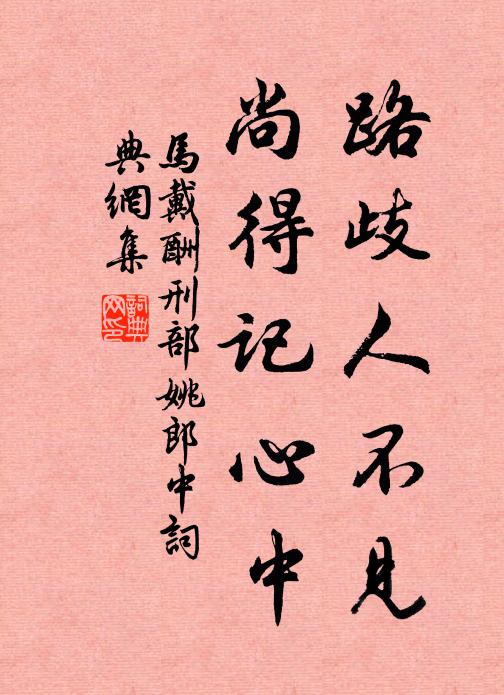 路歧人不見
尚得記心中
馬戴酬刑部姚郎中詞
典網集
詞典网印